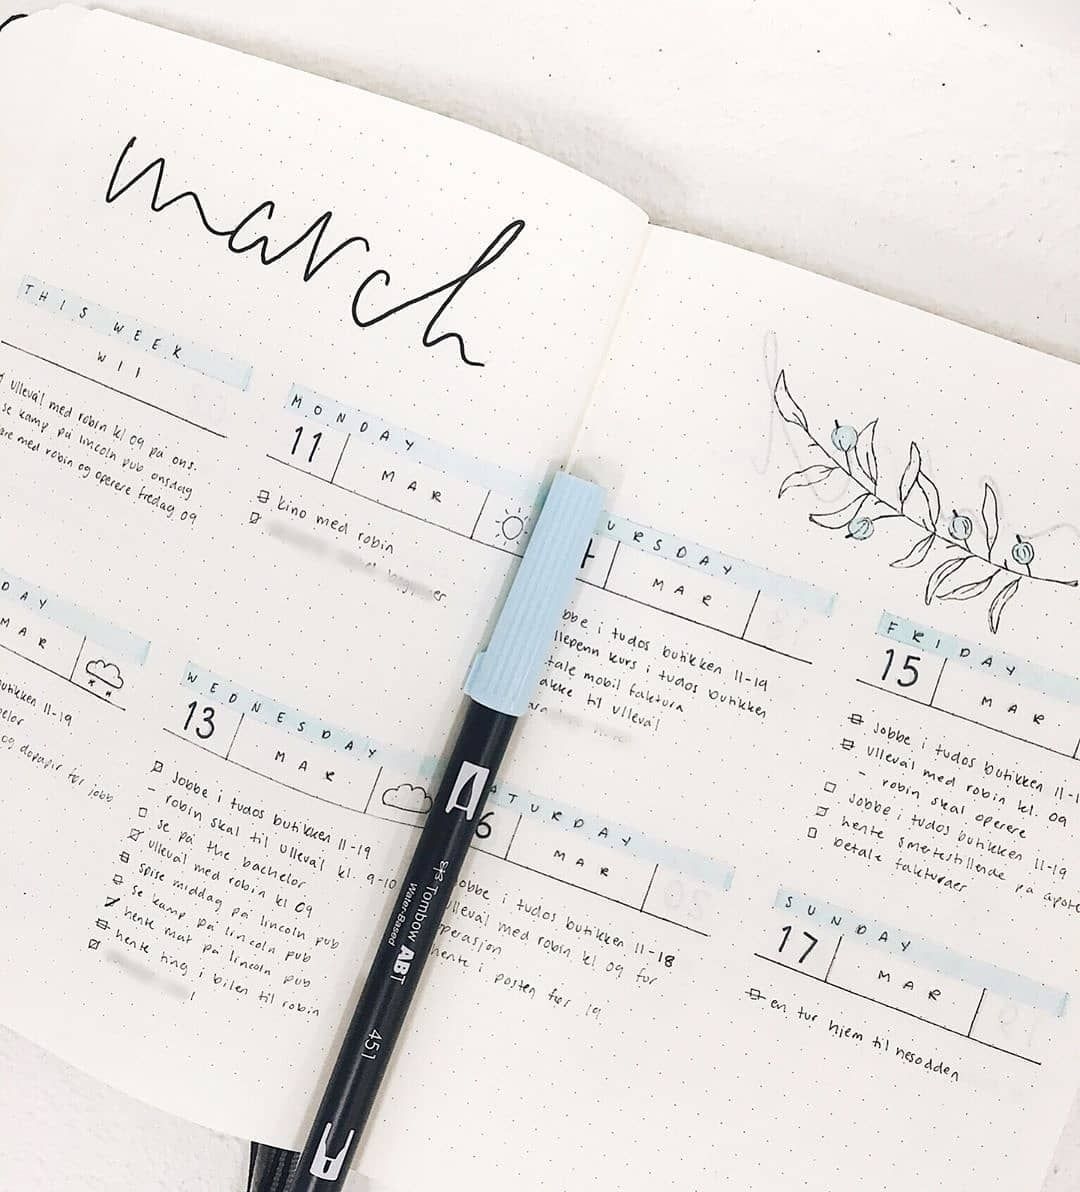 march
THIS WEEK
W 11
ullevål med robin kl 09 på ons.
se kamp på lincoln pub onsdag
med robin og operere fredag 09
MONDAY
11 MAR
kino med robin
DAY
MAR
butikken 11-19
og dopapir for jobb
WEDNESDAY
13 MAR
Jobbe i tudos butikken 11-19
- robin skal til ullevål kl. 9-10
se på the bachelor
ullevål med robin kl 09
spise middag på lincoln pub
se kamp på lincoln pub
hente mat på lincoln pub
hente ting i bilen til robin
URSDAY
MAR
obbe i tudos butikken 11-19
llepenn kurs i tudos butikken
tale mobil faktura
akke til ullevål
FRIDAY
15 MAR
Jobbe i tudos butikken 11-1
ullevål med robin kl. 09
- robin skal operere
Jobbe i tudos butikken 11-19
hente smertestillende på apote
betale fakturaer
ATURDAY
6 MAR
Jobbe i tudos butikken 11-18
ullevål med robin kl 09 for
operasjon
hente i posten før 19
SUNDAY
17 MAR
en tur hjem til nesodden
Tombow ABT
Water-Based
451